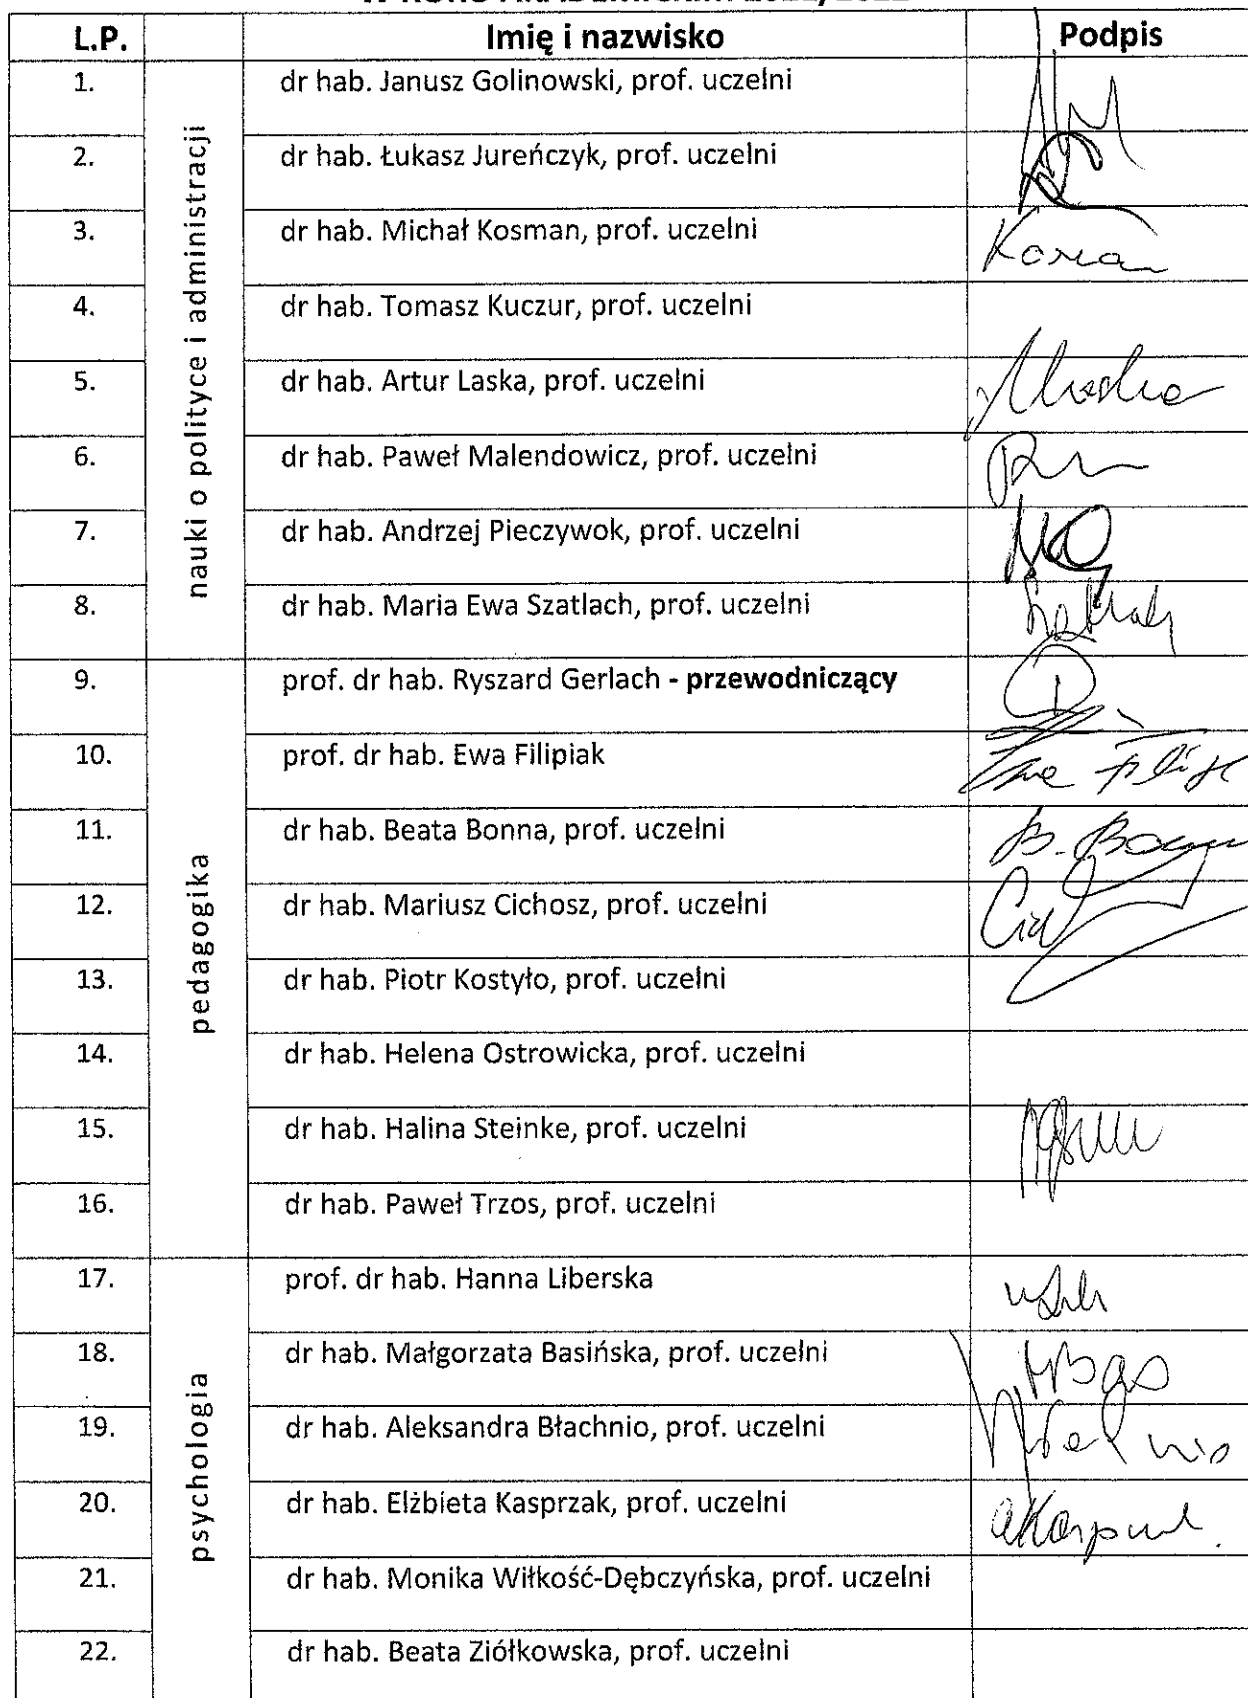 L.P. Imię i nazwisko Podpis
nauki o polityce i administracji
1. dr hab. Janusz Golinowski, prof. uczelni
2. dr hab. Łukasz Jureńczyk, prof. uczelni
3. dr hab. Michał Kosman, prof. uczelni
4. dr hab. Tomasz Kuczur, prof. uczelni
5. dr hab. Artur Laska, prof. uczelni
6. dr hab. Paweł Malendowicz, prof. uczelni
7. dr hab. Andrzej Pieczywok, prof. uczelni
8. dr hab. Maria Ewa Szatlach, prof. uczelni
pedagogika
9. prof. dr hab. Ryszard Gerlach - przewodniczący
10. prof. dr hab. Ewa Filipiak
11. dr hab. Beata Bonna, prof. uczelni
12. dr hab. Mariusz Cichosz, prof. uczelni
13. dr hab. Piotr Kostyło, prof. uczelni
14. dr hab. Helena Ostrowicka, prof. uczelni
15. dr hab. Halina Steinke, prof. uczelni
16. dr hab. Paweł Trzos, prof. uczelni
psychologia
17. prof. dr hab. Hanna Liberska
18. dr hab. Małgorzata Basińska, prof. uczelni
19. dr hab. Aleksandra Błachnio, prof. uczelni
20. dr hab. Elżbieta Kasprzak, prof. uczelni
21. dr hab. Monika Wiłkość-Dębczyńska, prof. uczelni
22. dr hab. Beata Ziółkowska, prof. uczelni